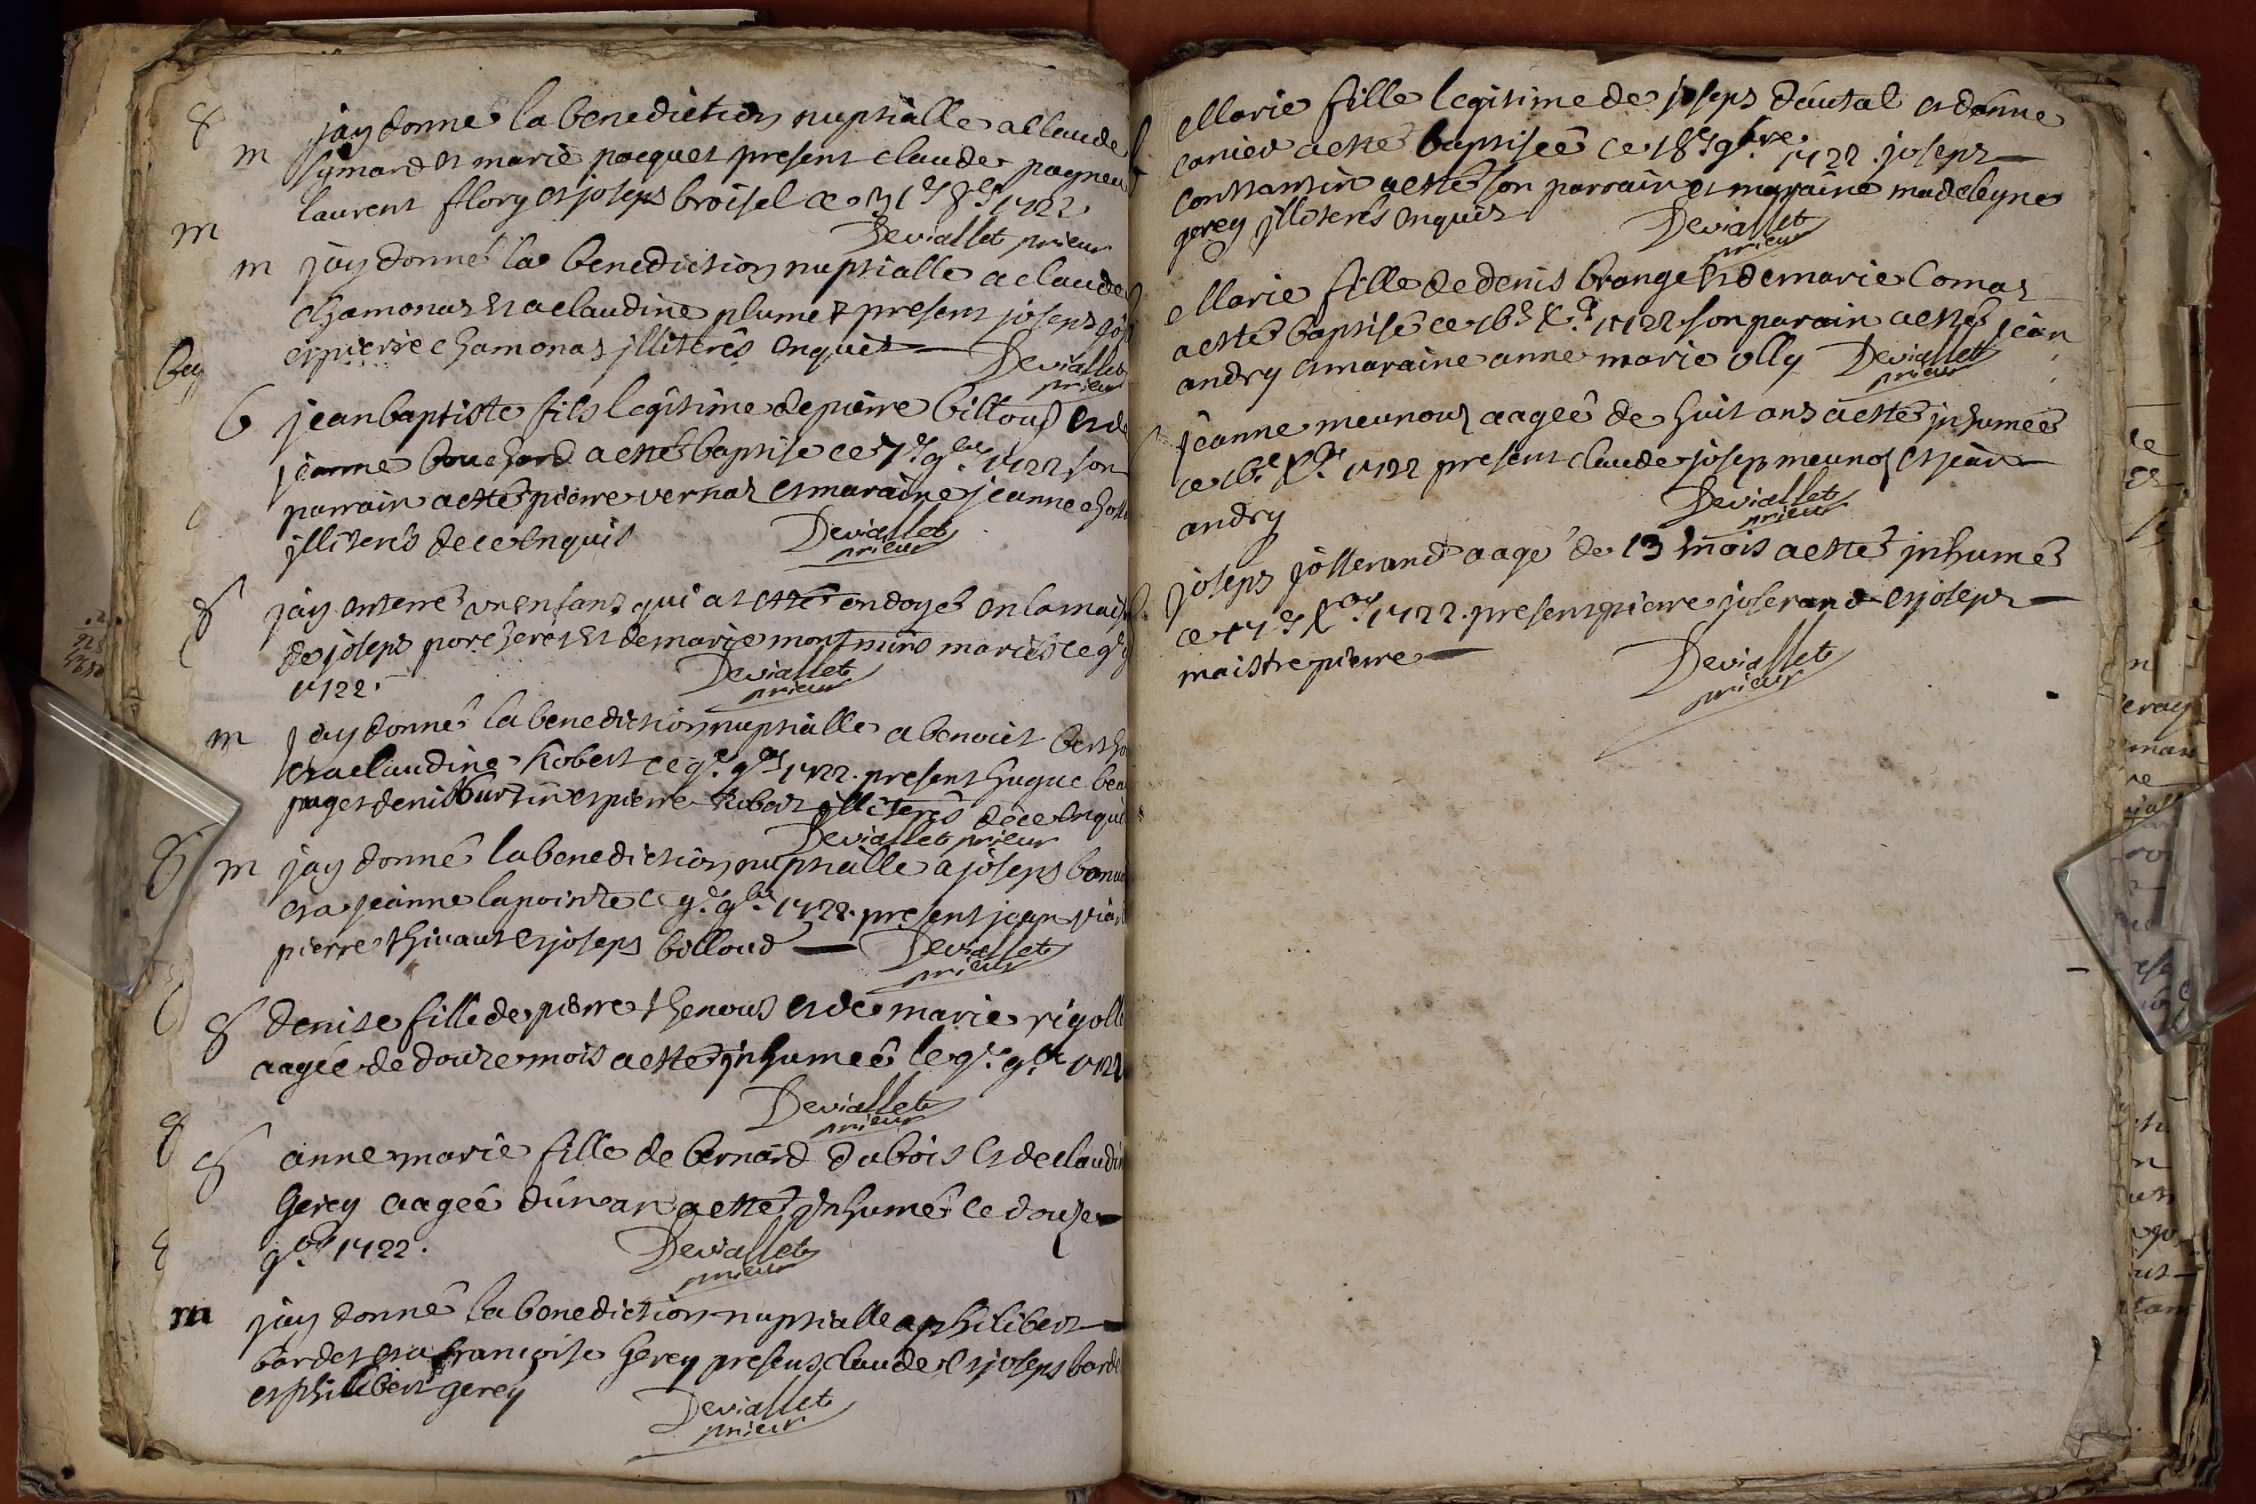 jay donné la benediction nuptialle a claude
m
symard et marie pacquet present claude pagneu
laurent flory et joseph broisel ce 8e 1722
Deviallet prieur
m jay donné la benediction nuptialle a claude
chamonaz et a claudine plumet present joseph
et pierre chamonaz jlliterés enquis
Deviallet
prieur
b jean baptiste fils legitime de pierre billoud et de
jeanne bouchard a esté baptisé ce 7e 9bre 1722 son
parrain a esté pierre vernaz et maraine jeanne
jlliterés de ce enquis
Deviallet
prieur
S jay enterré un enfant qui at esté ondoyé en la
de joseph porcheret et de marie mariés ce 9e
1722.
Deviallet
prieur
m jay donné la benediction nuptialle a benoit
et a claudine Robert ce 9e 9bre 1722. present hugue
puget denis burtin et pierre Robert jlliterés de ce enqui
Deviallet prieur
m jay donné la benediction nuptialle a joseph
et a jeanne lapointe ce 9e 9bre 1722. present jean
pierre thivaut et joseph billoud
Deviallet
prieur
S denise fille de pierre thenoud et de marie rigolle
aagée de douze mois a esté jnhumeé le 9e 9bre 1722
Deviallet
prieur
S anne marie fille de bernard dubois et de claudin
Gerey aageé d'un an a esté jnhumé ce douze
9bre 1722.
Deviallet
prieur
m jay donné la benediction nuptialle a philibert
bardet et a françoise Gerey present claude et joseph barde
et philibert gerey
Deviallet
prieur
Marie fille legitime de joseph dautal et d'anne
carrier a esté baptiseé ce 18e 9bre 1722. joseph
constantin a esté son parrain et maraine madeleyne
gerey jlliterés enquis
Deviallet
prieur
Marie fille de denis brange et de marie Comaz
a esté baptisé ce 16e Xbre 1722 son parain a esté jean
andry et maraine anne marie olly
Deviallet
prieur
jeanne meunoz aageé de huit ans a esté jnhumeé
ce 16e Xbre 1722 present claude joseph meunoz et jean
andry
Deviallet
prieur
joseph josserand aagé de 13 mois a esté jnhumé
ce 17e Xbre 1722. present pierre joserand et joseph
maistre pierre
Deviallet
prieur